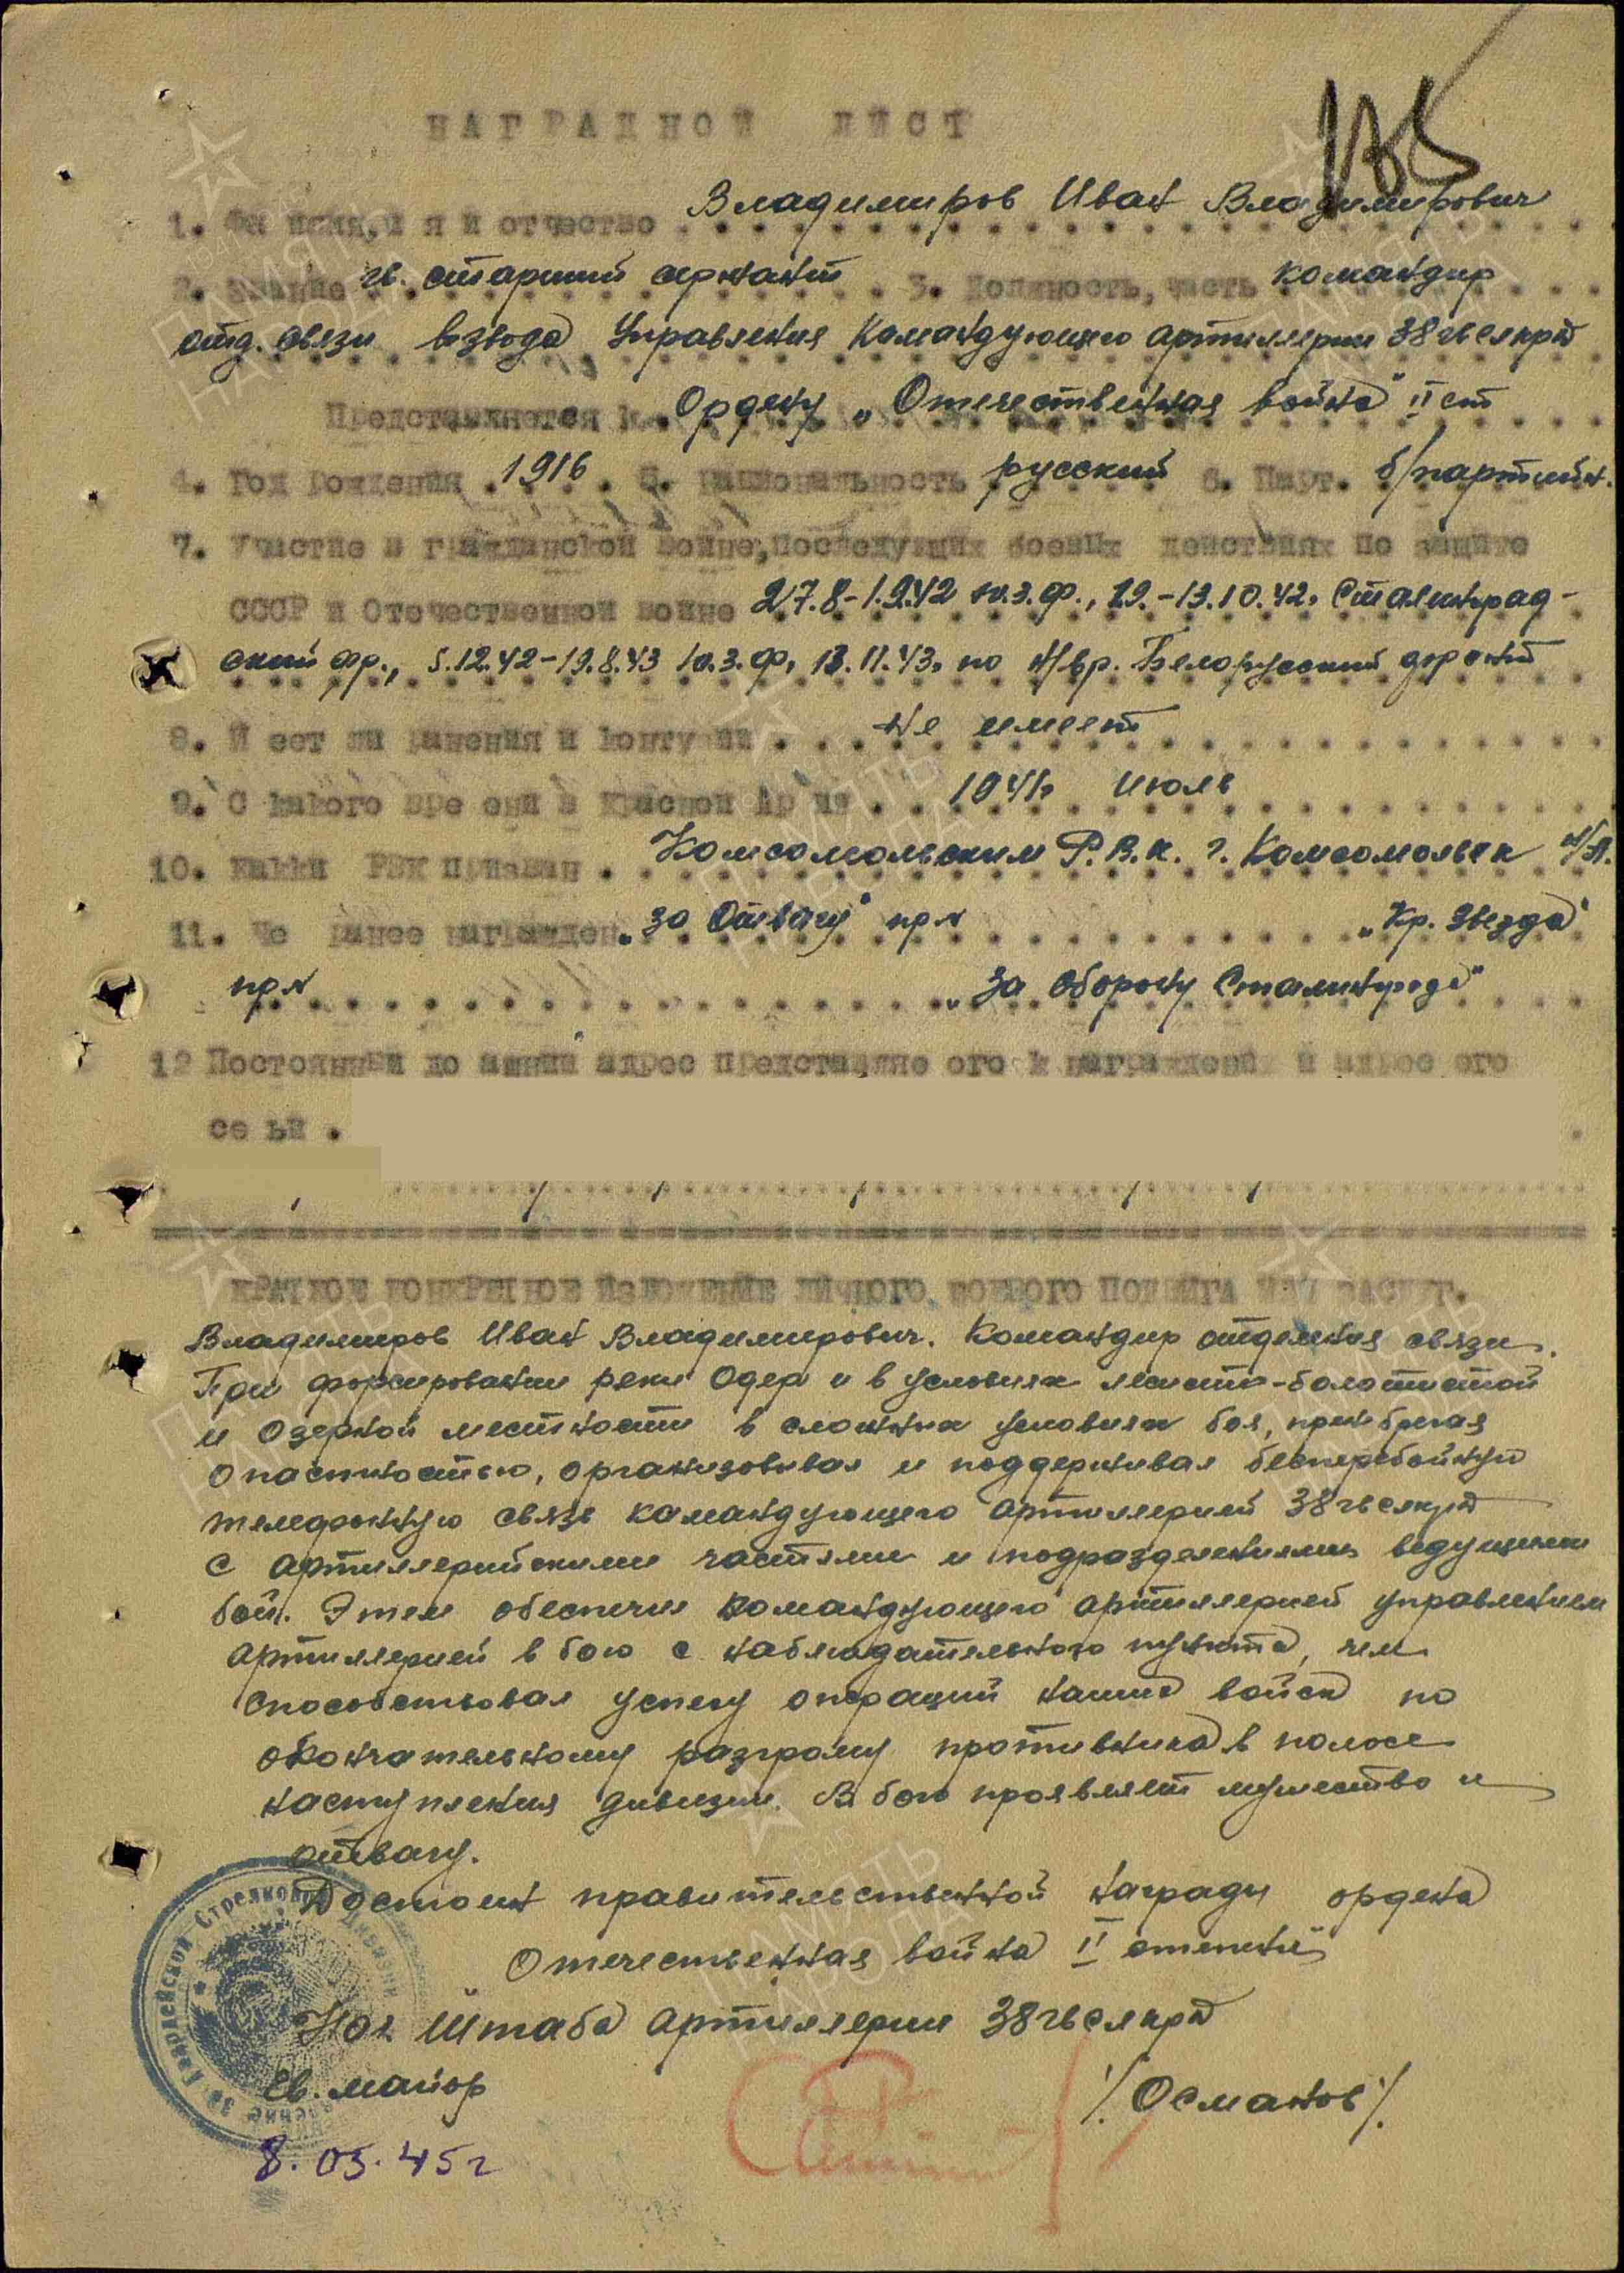 НАГРАДНОЙ ЛИСТ
1. Фамилия, имя и отчество Владимиров Иван Владимирович
2. Звание гв. старший сержант 3. Должность, часть командир
отд. связи взвода Управления Командующего артиллерии 38 гв слкрд
Представляется к Ордену „Отечественная война" II ст
4. Год рождения 1916 5. Национальность русский 6. Парт. б/партийн.
7. Участие в гражданской войне, последующих боевых действиях по защите
СССР и Отечественной войне 27.8-1.9.42 ю.з.ф., 2.9.-13.10.42. Сталинград-
ский фр., 5.12.42-19.8.43 ю.з.ф, 13.11.43. по н/вр. Белорусский фронт
8. Имеет ли ранения и контузии . Не имеет
9. С какого времени в Красной Армии . . 1941г. Июль
10. Каким РВК призван . Комсомольским Р.В.К. г. Комсомольск н/А.
11. Чем ранее награжден „За Отвагу" пр № „Кр. Звезда"
пр № „За Оборону Сталинграда"
12 Постоянный домашний адрес представляемого к награждению и адрес его
семьи .
КРАТКОЕ КОНКРЕТНОЕ ИЗЛОЖЕНИЕ ЛИЧНОГО БОЕВОГО ПОДВИГА ИЛИ ЗАСЛУГ.
Владимиров Иван Владимирович. Командир отделения связи.
При форсировании реки Одер и в условиях лесисто-болотистой
и озерной местности в сложных условиях боя, пренебрегая
опасностью, организовывал и поддерживал бесперебойную
телефонную связь командующего артиллерией 38 гв слкрд
с артиллерийскими частями и подразделениями ведущими
бой. Этим обеспечил командующего артиллерией управлением
артиллерией в бою с наблюдательного пункта, чем
способствовал успеху операций наших войск по
окончательному разгрому противника в полосе
наступления дивизии. В бою проявляет мужество и
отвагу.
Достоин правительственной награды ордена
Отечественная война II степени
Нач. Штаба артиллерии 38 гв слкрд
гв. майор /Османов/
8.05.45 г
Гвардейской Стрелковой Дивизии
ПАМЯТЬ НАРОДА